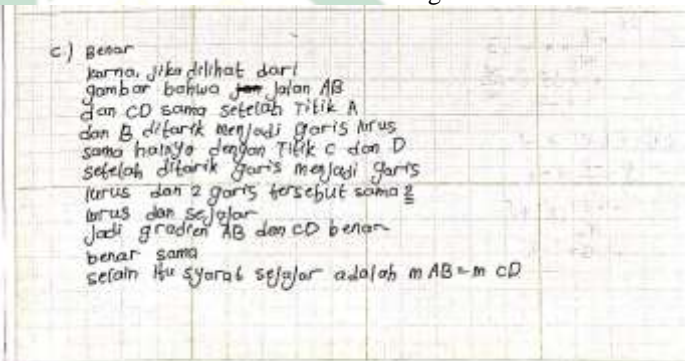 c.) Benar
karna, jika dilihat dari
gambar bahwa jalan AB
dan CD sama setelah Titik A
dan B ditarik menjadi garis lurus
sama halnya dengan Titik C dan D
setelah ditarik garis menjadi garis
lurus dan 2 garis tersebut sama 2
lurus dan sejajar
Jadi gradien AB dan CD benar
benar sama
selain itu syarat sejajar adalah m AB = m CD